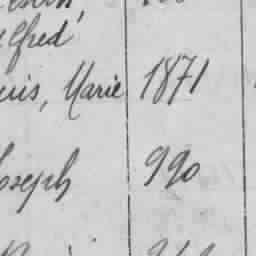 lfred
uis, Marie 1871
oseph 990